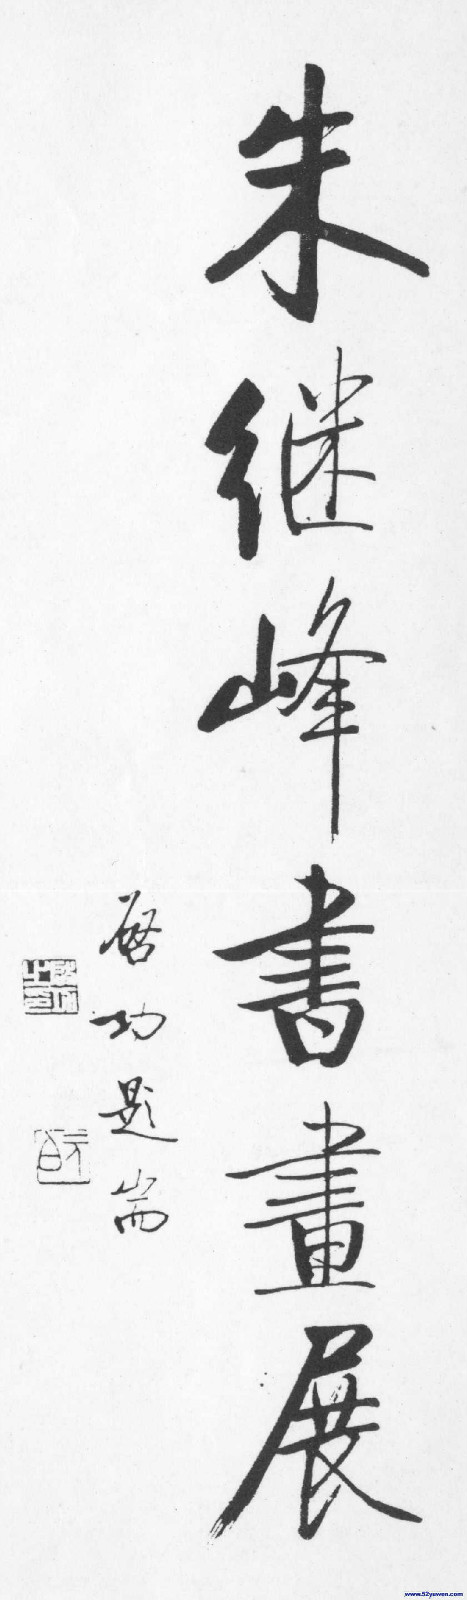 朱继峰書畫展
启功题耑
www.52yswen.com